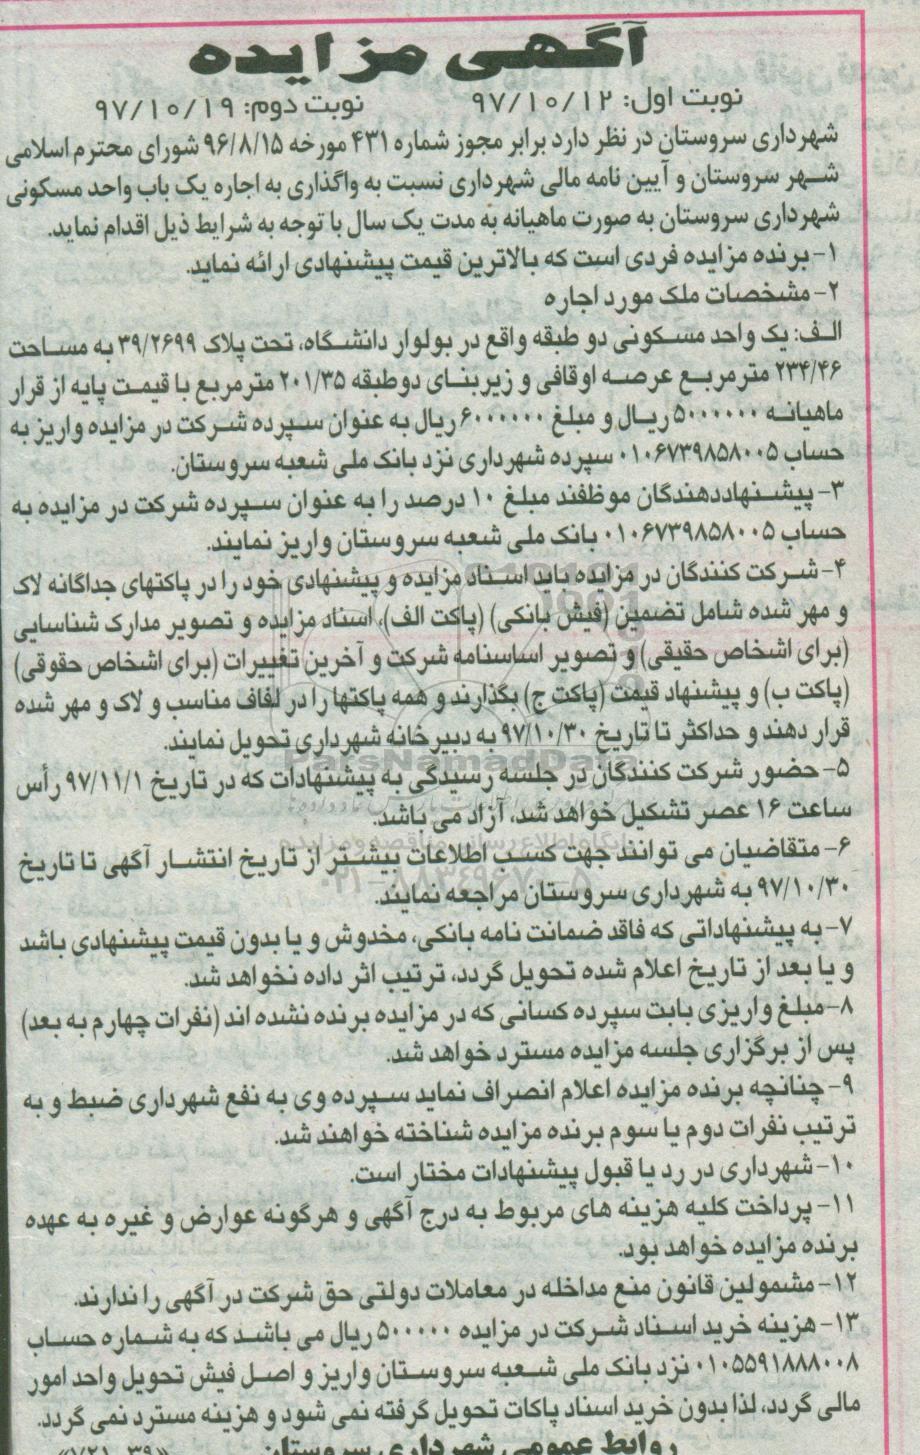 آگهی مزایده
نوبت اول: ۹۷/۱۰/۱۲ نوبت دوم: ۹۷/۱۰/۱۹
شهرداری سروستان در نظر دارد برابر مجوز شماره ۴۳۱ مورخه ۹۶/۸/۱۵ شورای محترم اسلامی
شهر سروستان و آیین نامه مالی شهرداری نسبت به واگذاری به اجاره یک باب واحد مسکونی
شهرداری سروستان به صورت ماهیانه به مدت یک سال با توجه به شرایط ذیل اقدام نماید.
۱- برنده مزایده فردی است که بالاترین قیمت پیشنهادی ارائه نماید.
۲- مشخصات ملک مورد اجاره
الف: یک واحد مسکونی دو طبقه واقع در بولوار دانشگاه، تحت پلاک ۳۹/۲۶۹۹ به مساحت
۲۳۴/۴۶ مترمربع عرصه اوقافی و زیربنای دوطبقه ۲۰۱/۳۵ مترمربع با قیمت پایه از قرار
ماهیانه ۵۰۰۰۰۰۰ ریال و مبلغ ۶۰۰۰۰۰۰ ریال به عنوان سپرده شرکت در مزایده واریز به
حساب ۰۱۰۶۷۳۹۸۵۸۰۰۵ سپرده شهرداری نزد بانک ملی شعبه سروستان.
۳- پیشنهاددهندگان موظفند مبلغ ۱۰ درصد را به عنوان سپرده شرکت در مزایده به
حساب ۰۱۰۶۷۳۹۸۵۸۰۰۵ بانک ملی شعبه سروستان واریز نمایند.
۴- شرکت کنندگان در مزایده باید اسناد مزایده و پیشنهادی خود را در پاکتهای جداگانه لاک
و مهر شده شامل تضمین (فیش بانکی) (پاکت الف)، اسناد مزایده و تصویر مدارک شناسایی
(برای اشخاص حقیقی) و تصویر اساسنامه شرکت و آخرین تغییرات (برای اشخاص حقوقی)
(پاکت ب) و پیشنهاد قیمت (پاکت ج) بگذارند و همه پاکتها را در لفاف مناسب و لاک و مهر شده
قرار دهند و حداکثر تا تاریخ ۹۷/۱۰/۳۰ به دبیرخانه شهرداری تحویل نمایند.
ParsNamadData
۵- حضور شرکت کنندگان در جلسه رسیدگی به پیشنهادات که در تاریخ ۹۷/۱۱/۱ رأس
ساعت ۱۶ عصر تشکیل خواهد شد، آزاد می باشد.
پایگاه اطلاع رسانی مناقصه و مزایده
۶- متقاضیان می توانند جهت کسب اطلاعات بیشتر از تاریخ انتشار آگهی تا تاریخ
۰۲۱-۸۸۳۴۹۶۷۰-۵
۹۷/۱۰/۳۰ به شهرداری سروستان مراجعه نمایند.
۷- به پیشنهاداتی که فاقد ضمانت نامه بانکی، مخدوش و یا بدون قیمت پیشنهادی باشد
و یا بعد از تاریخ اعلام شده تحویل گردد، ترتیب اثر داده نخواهد شد.
۸-مبلغ واریزی بابت سپرده کسانی که در مزایده برنده نشده اند (نفرات چهارم به بعد)
پس از برگزاری جلسه مزایده مسترد خواهد شد.
۹- چنانچه برنده مزایده اعلام انصراف نماید سپرده وی به نفع شهرداری ضبط و به
ترتیب نفرات دوم یا سوم برنده مزایده شناخته خواهند شد.
۱۰- شهرداری در رد یا قبول پیشنهادات مختار است.
۱۱- پرداخت کلیه هزینه های مربوط به درج آگهی و هرگونه عوارض و غیره به عهده
برنده مزایده خواهد بود.
۱۲- مشمولین قانون منع مداخله در معاملات دولتی حق شرکت در آگهی را ندارند.
۱۳- هزینه خرید اسناد شرکت در مزایده ۵۰۰۰۰۰ ریال می باشد که به شماره حساب
۰۱۰۵۵۹۱۸۸۸۰۰۸ نزد بانک ملی شعبه سروستان واریز و اصل فیش تحویل واحد امور
مالی گردد، لذا بدون خرید اسناد پاکات تحویل گرفته نمی شود و هزینه مسترد نمی گردد.
روابط عمومی شهرداری سروستان